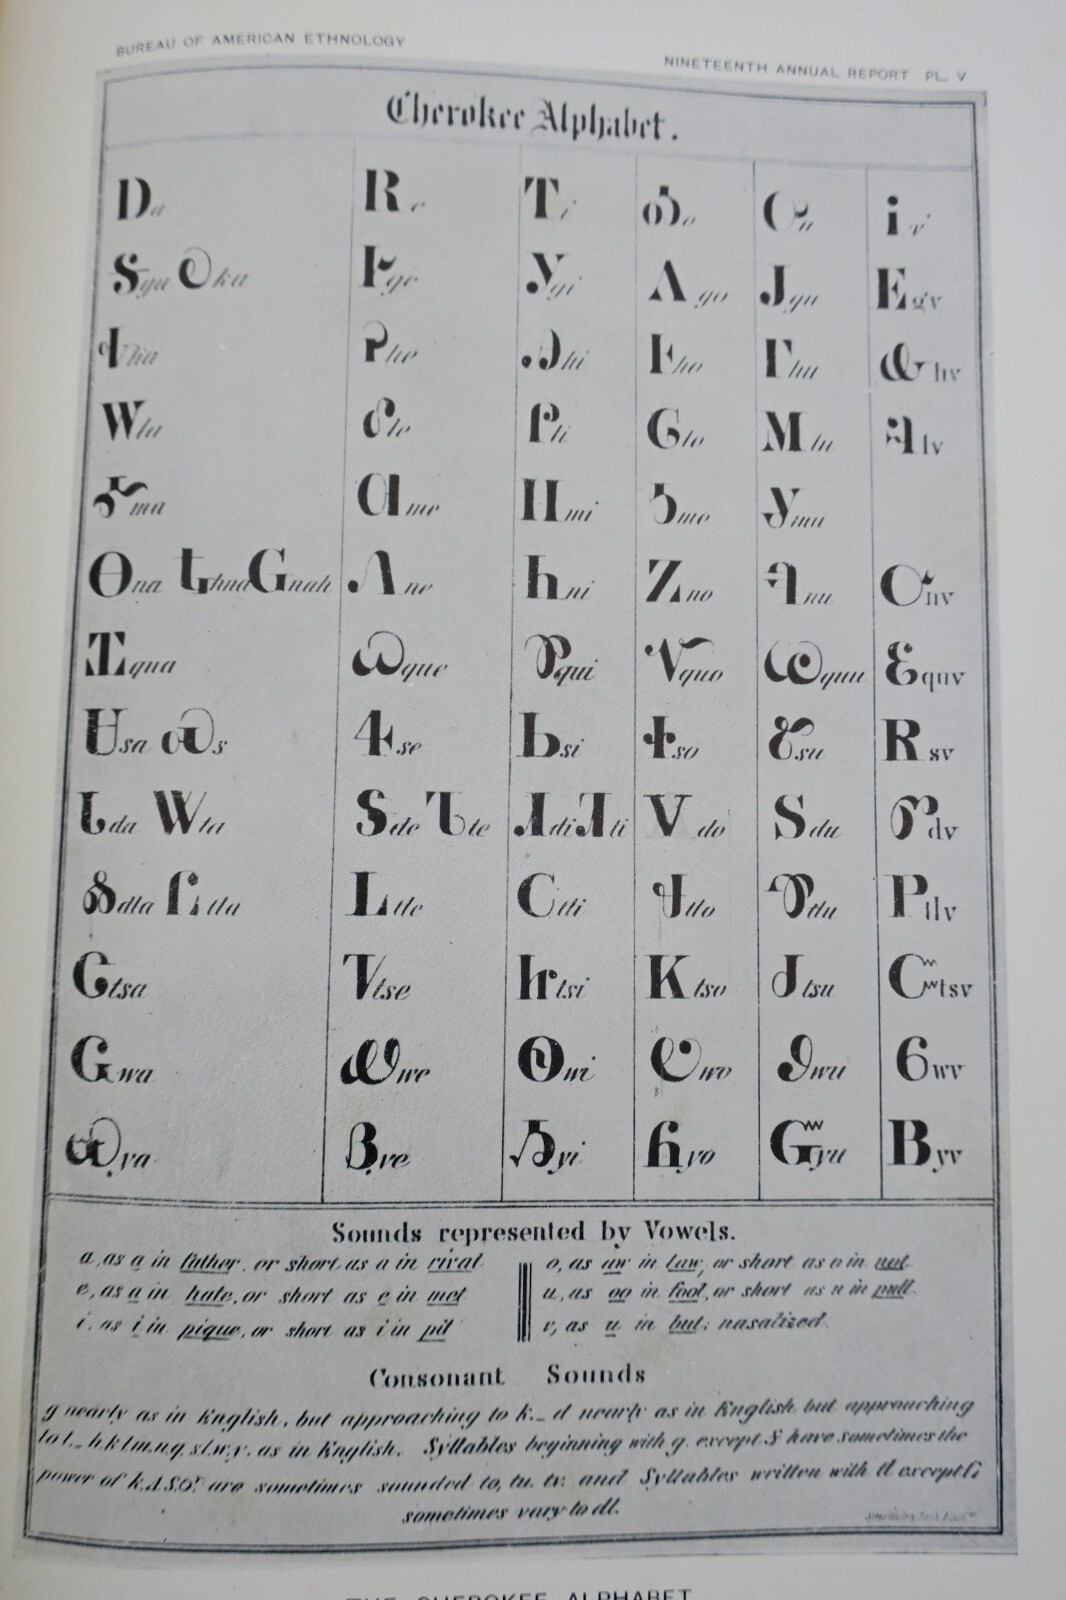 BUREAU OF AMERICAN ETHNOLOGY
NINETEENTH ANNUAL REPORT PL. V
Cherokee Alphabet.
Ꭰ a Ꭱ e Ꭲ i Ꭳ o Ꭴ u Ꭵ v
Ꭶ ga Ꭷ ka Ꭸ ge Ꭹ gi Ꭺ go Ꭻ gu Ꭼ gv
Ꭽ ha Ꭾ he Ꭿ hi Ꮀ ho Ꮁ hu Ꮂ hv
Ꮃ la Ꮄ le Ꮅ li Ꮆ lo Ꮇ lu Ꮈ lv
Ꮉ ma Ꮊ me Ꮋ mi Ꮌ mo Ꮍ mu
Ꮎ na Ꮏ hna Ꮐ nah Ꮑ ne Ꮒ ni Ꮓ no Ꮔ nu Ꮕ nv
Ꮖ qua Ꮗ que Ꮘ qui Ꮙ quo Ꮚ quu Ꮛ quv
Ꮜ sa Ꮝ s Ꮞ se Ꮟ si Ꮠ so Ꮡ su Ꮢ sv
Ꮣ da Ꮤ ta Ꮥ de Ꮦ te Ꮧ di Ꮨ ti Ꮩ do Ꮪ du Ꮫ dv
Ꮬ dla Ꮭ tla Ꮮ tle Ꮯ tli Ꮰ tlo Ꮱ tlu Ꮲ tlv
Ꮳ tsa Ꮴ tse Ꮵ tsi Ꮶ tso Ꮷ tsu Ꮸ tsv
Ꮹ wa Ꮺ we Ꮻ wi Ꮼ wo Ꮽ wu Ꮾ wv
Ꮿ ya Ᏸ ye Ᏹ yi Ᏺ yo Ᏻ yu Ᏼ yv
Sounds represented by Vowels.
a, as a in father, or short as a in rival
e, as a in hate, or short as e in met
i, as i in pique, or short as i in pit
o, as aw in law, or short as o in not.
u, as oo in fool, or short as u in pull.
v, as u in but; nasalized.
Consonant Sounds
g nearly as in English, but approaching to k._ d nearly as in English but approaching
to t._ h.k.l.m.n.q.s.t.w.y. as in English. Syllables beginning with g. except Ꭶ have sometimes the
power of k. Ꭺ Ꮪ Ꮫ are sometimes sounded to, tu, tv: and Syllables written with tl except Ꮭ
sometimes vary to dl.
THE CHEROKEE ALPHABET